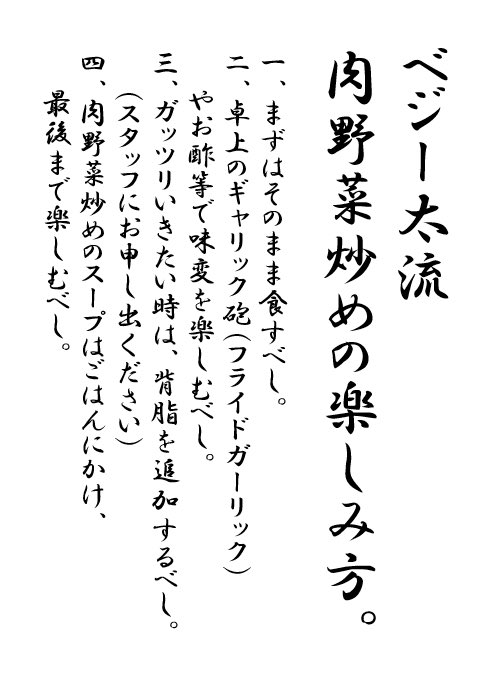 ベジ一太流
肉野菜炒めの楽しみ方。
一、まずはそのまま食すべし。
二、卓上のギャリック砲(フライドガーリック)
やお酢等で味変を楽しむべし。
三、ガッツリいきたい時は、背脂を追加するべし。
(スタッフにお申し出ください)
四、肉野菜炒めのスープはごはんにかけ、
最後まで楽しむべし。